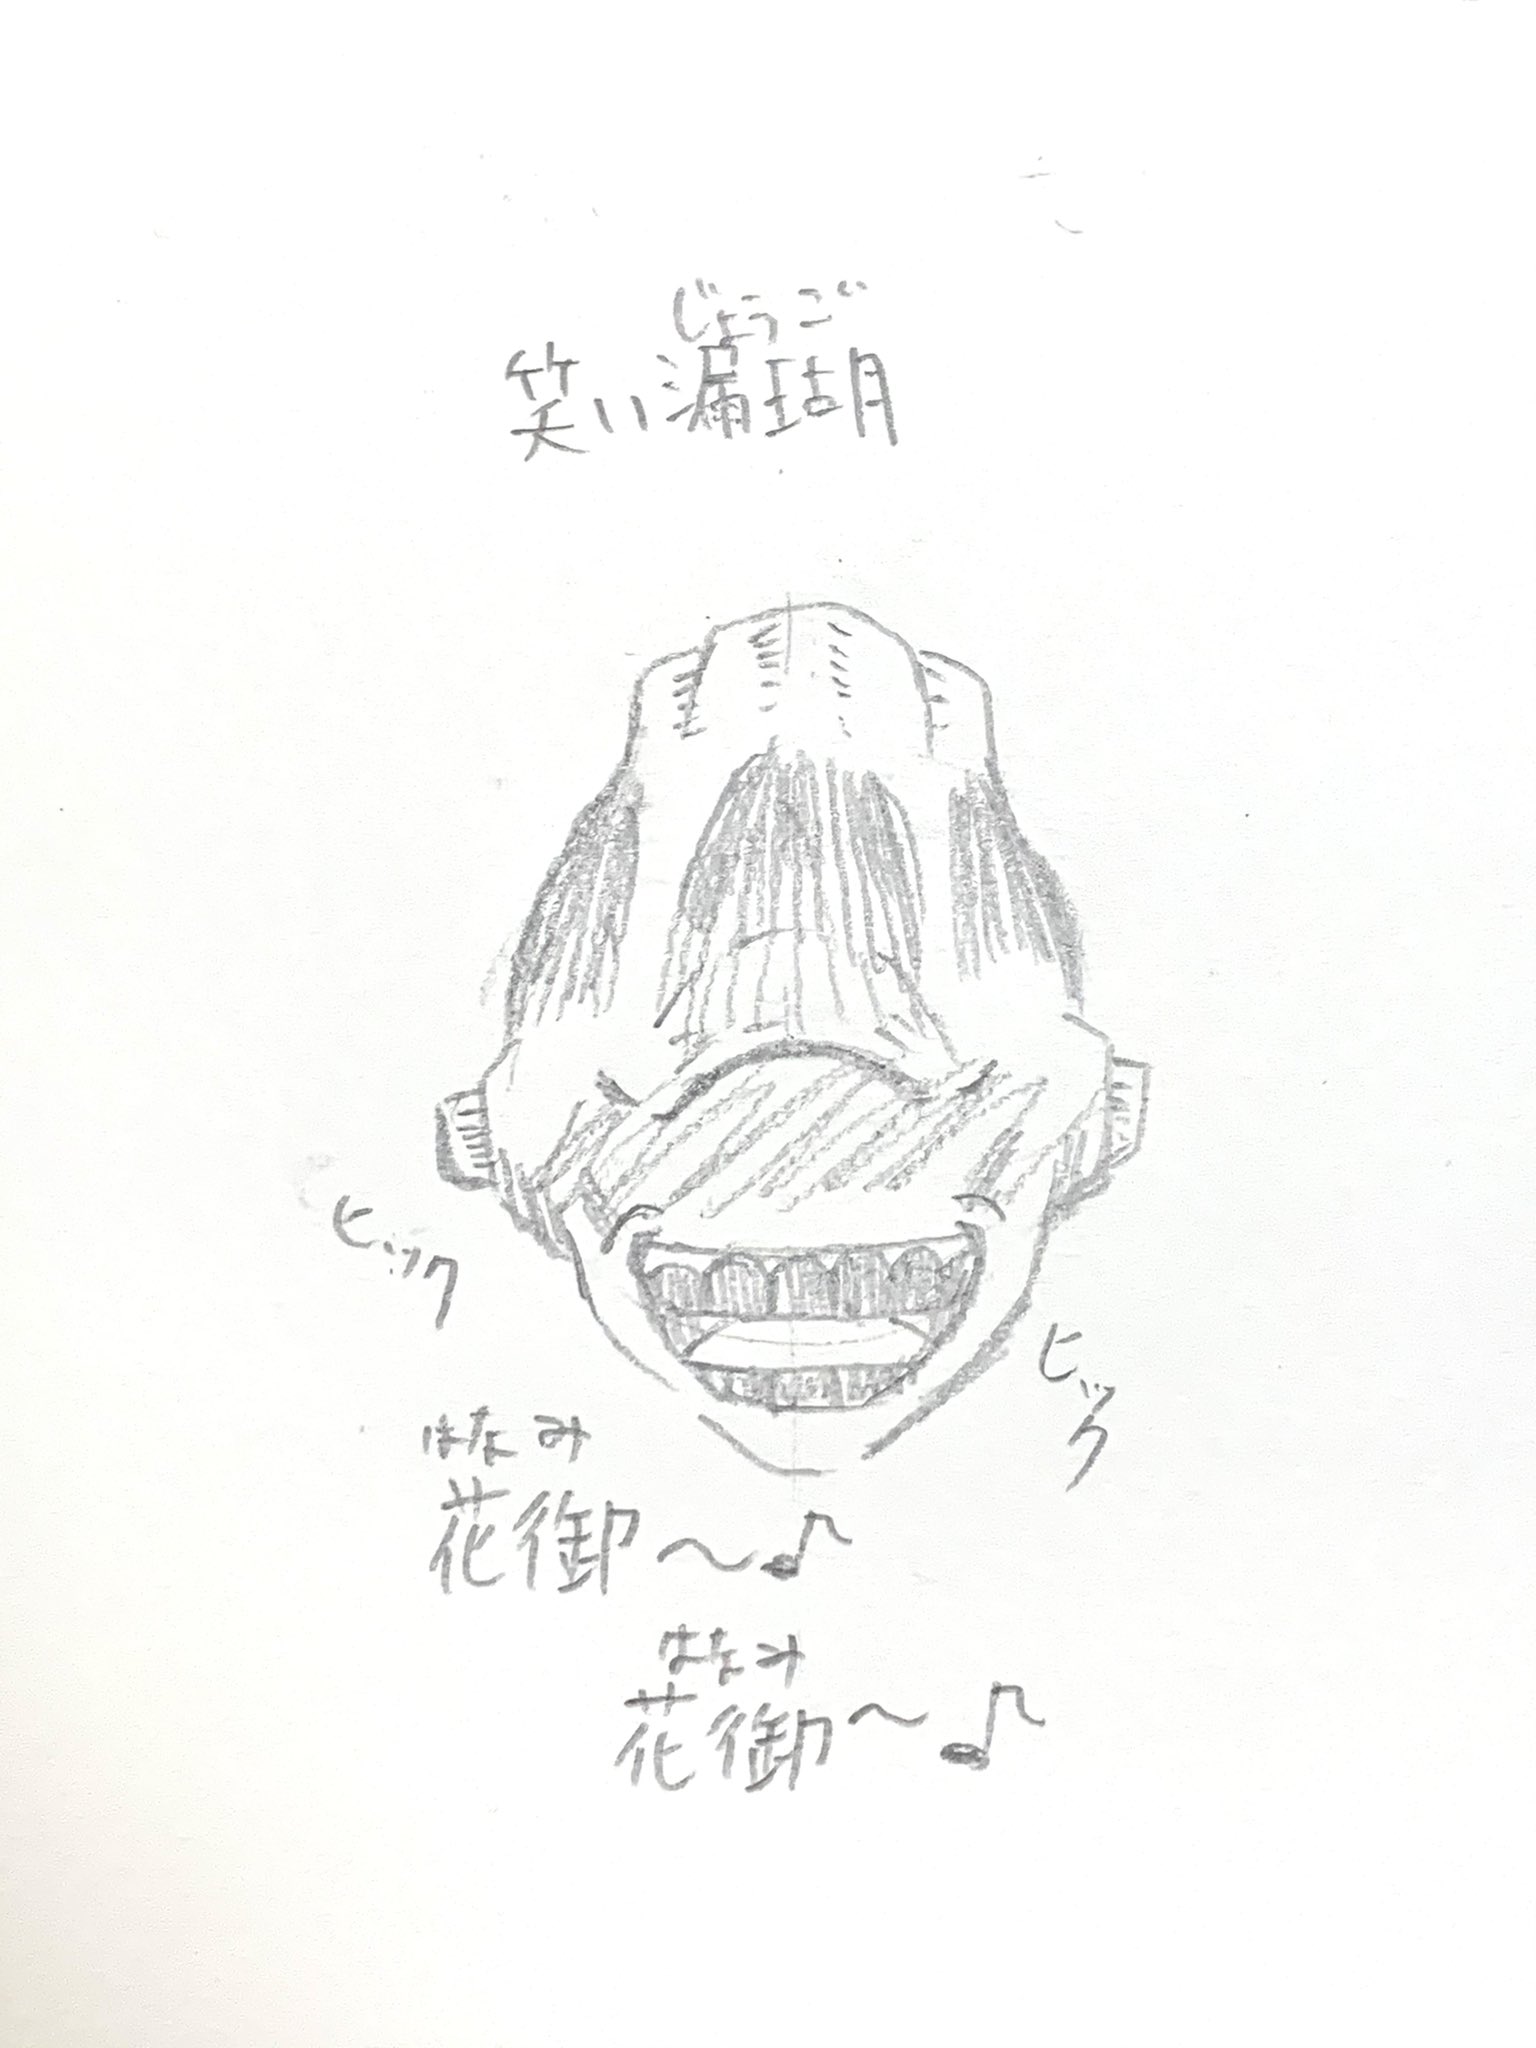 じょうご
笑い漏瑚
ヒック
ヒック
はなみ
花御〜♪
はなみ
花御〜♪